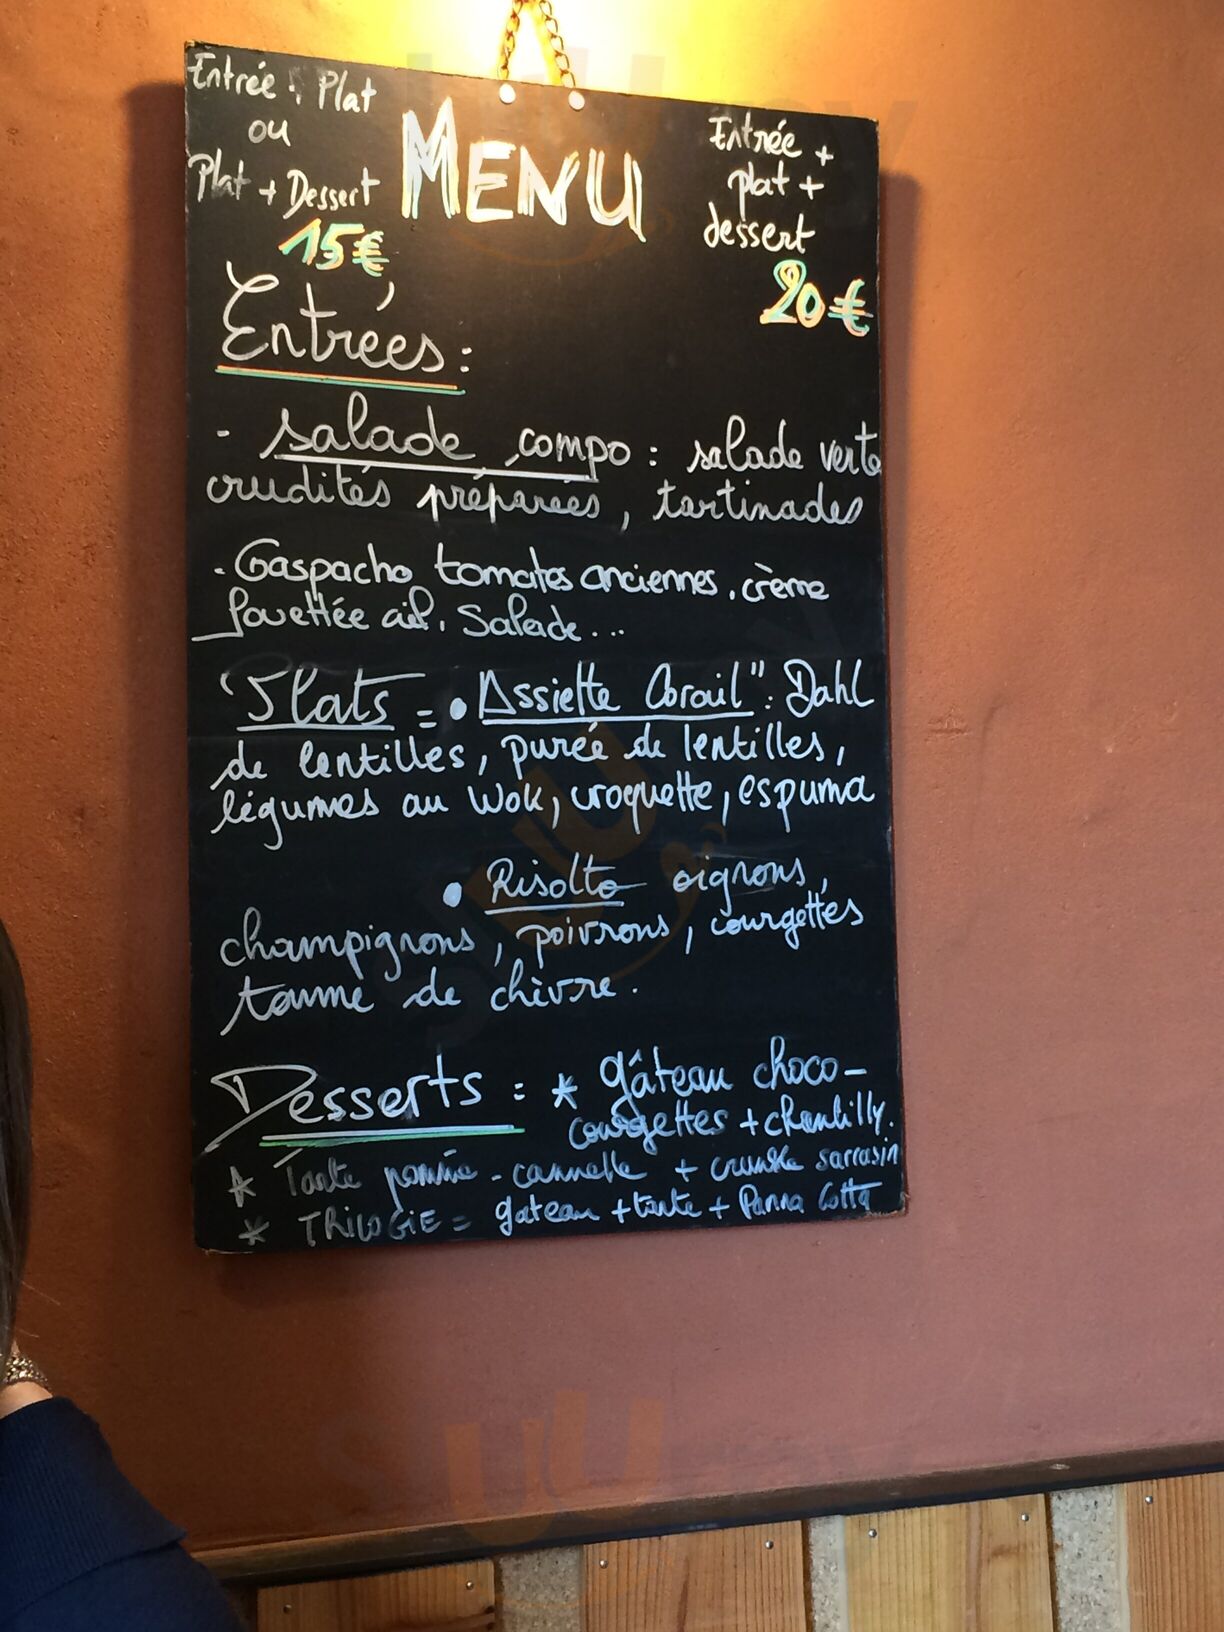 Entrée : Plat
ou
Plat + Dessert
15€
MENU
Entrée +
plat +
dessert
20€
Entrées :
- salade compo : salade verte
crudités préparées, tartinades
- Gaspacho tomates anciennes, crème
fouettée ail. Salade...
Plats = • Assiette Corail" : Dahl
de lentilles, purée de lentilles,
légumes au Wok, croquette, espuma
• Risotto oignons,
champignons, poivrons, courgettes
tomme de chèvre.
Desserts = * gâteau choco-
courgettes + chantilly.
* Tarte pomme - cannelle + crumble sarrasin
* TRILOGIE = gateau + tarte + Panna Cotta